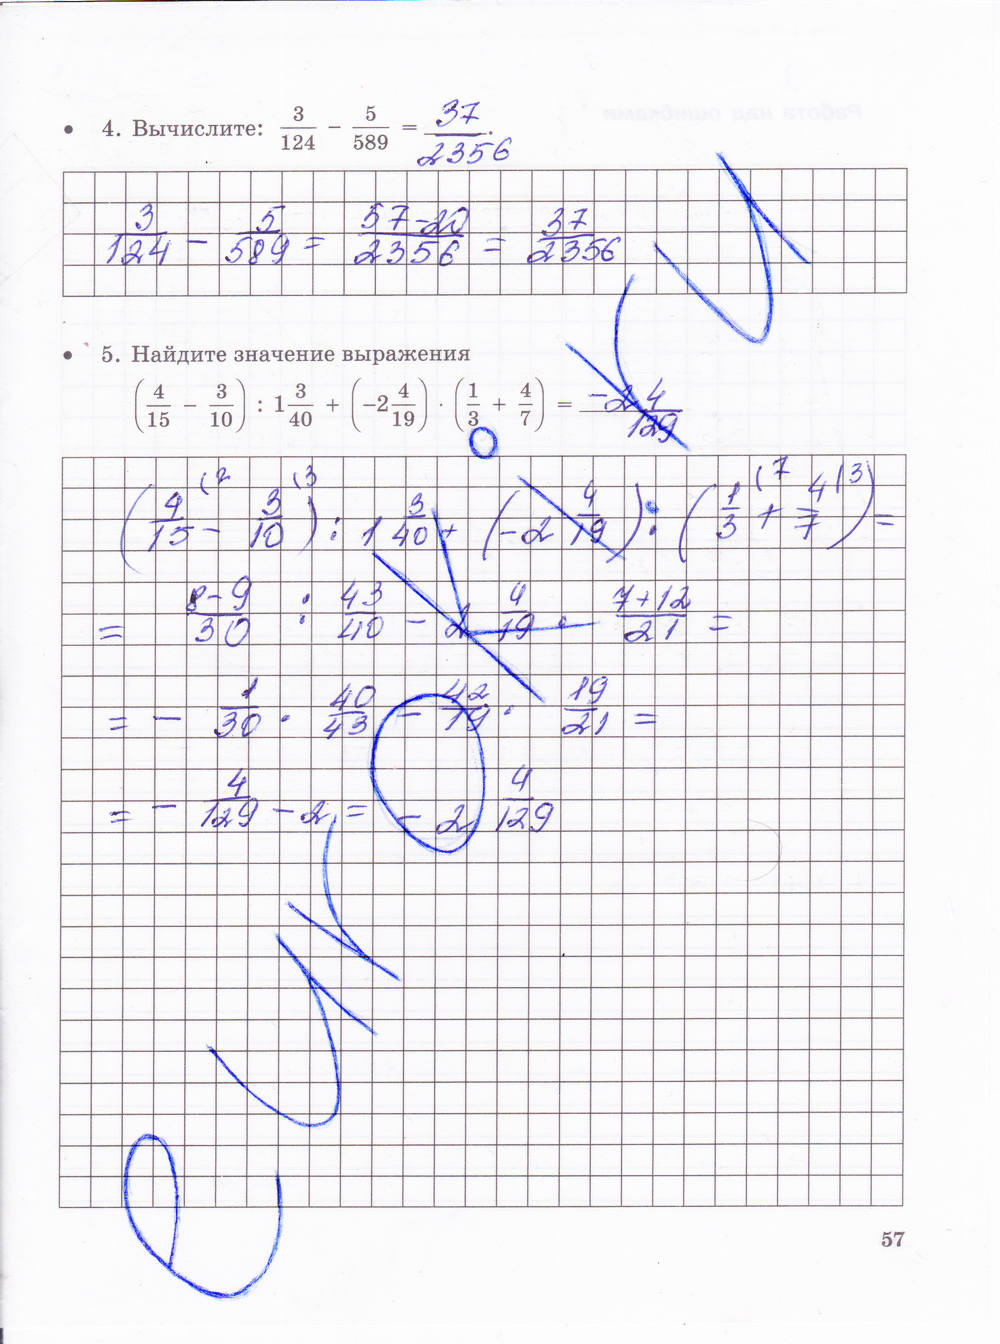 • 4. Вычислите: 3/124 − 5/589 = 37/2356.
3/124 − 5/589 = 57−20/2356 = 37/2356
• 5. Найдите значение выражения
(4/15 − 3/10) : 1 3/40 + (−2 4/19) · (1/3 + 4/7) = −2 4/129
(4/15 (2 − 3/10 (3) : 1 3/40 + (−2 4/19) : (1/3 (7 + 4/7 (3) =
= 8−9/30 : 43/40 − 2 4/19 · 7+12/21 =
= − 1/30 · 40/43 − 42/19 · 19/21 =
= − 4/129 − 2 = − 2 4/129
57